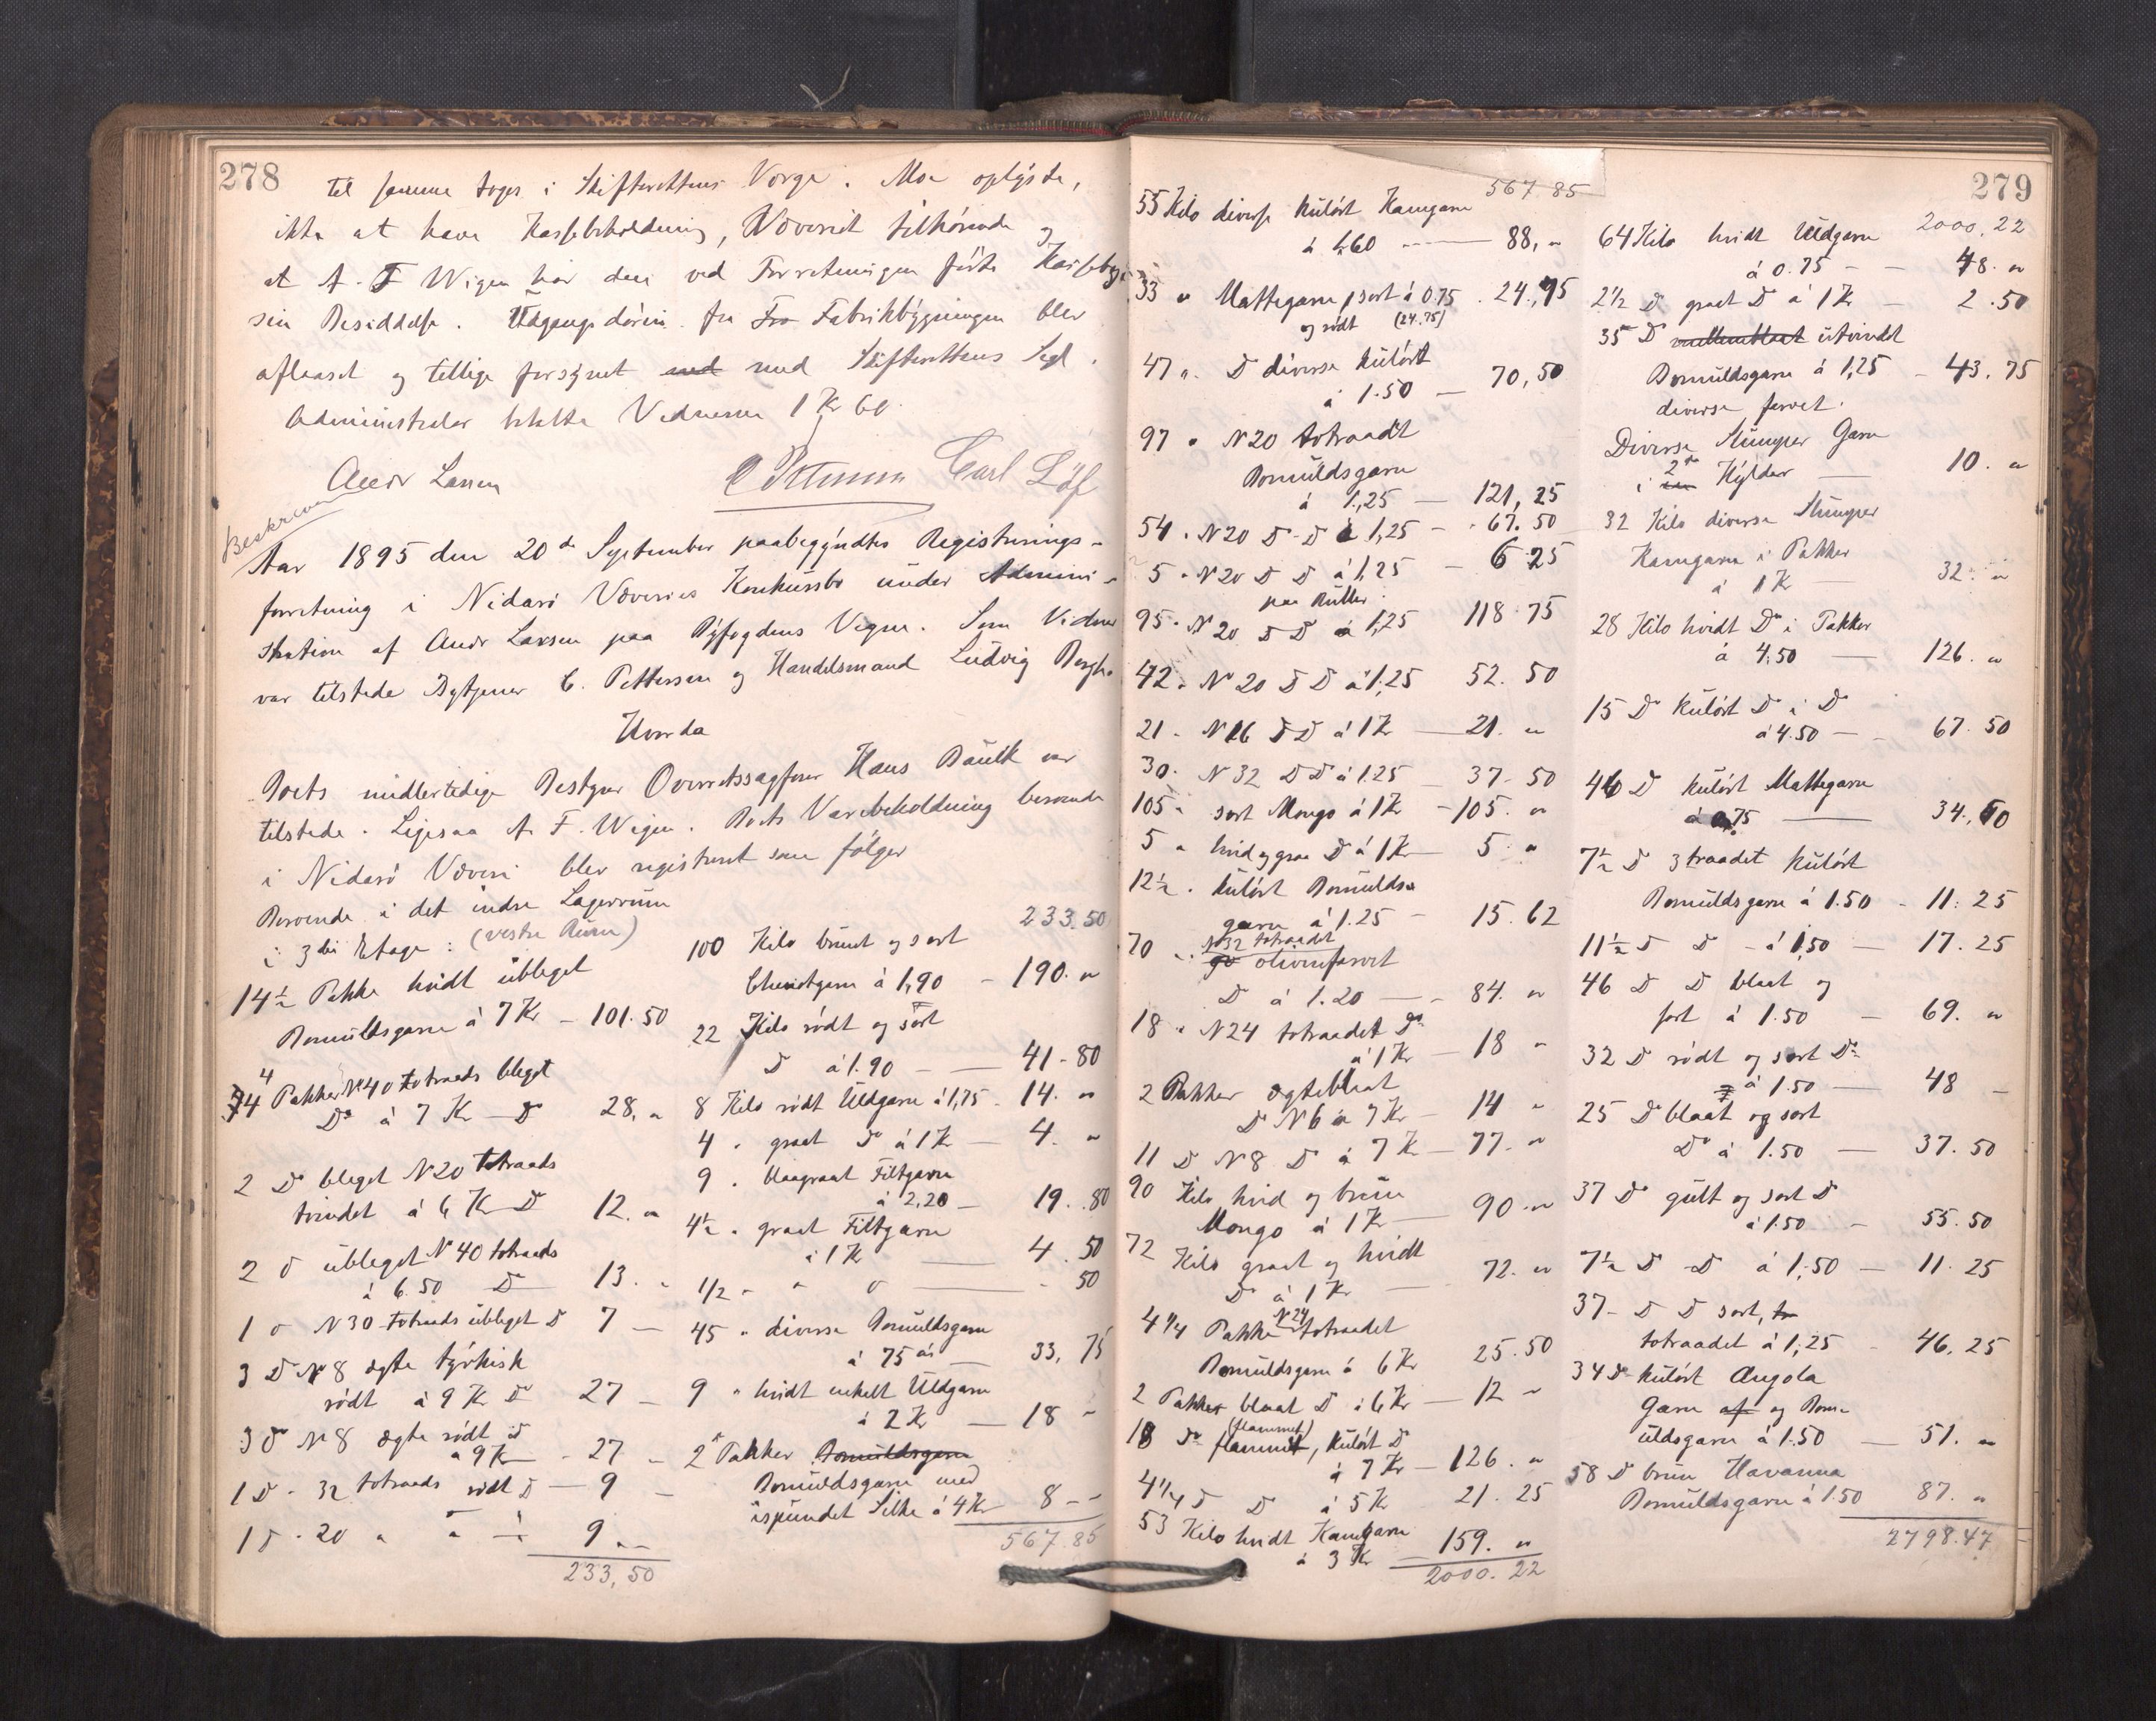 278
til samme toges i Skifterettens Værge. Man oplyste,
ikke at have Kassebeholdning, Væveriet tilhørende og
at A. F Wigen har den ved Forretningen førte Kassebog i
sin Besiddelse. Udgangsdøren fra Fabrikbygningen blev
aflaaset og tillige forsynet med Skifterettens Segl.
Administrator betalte Vidnerne 1 Kr 60.
Andr Larsen C Pettersen Carl Löf
Beskreven
Aar 1895 den 20de September paabegyndtes Registrerings-
forretning i Nidarø Væveries Konkursbo under Admini-
stration af Andr Larsen paa Byfogdens Vegne. Som Vidner
var tilstede Bytjener C. Pettersen og Handelsmand Ludvig Bergh.
Hvorda
Boets midlertidige Bestyrer Overretssagfører Hans Bauck var
tilstede. Ligesaa A. F. Wigen. Boets Varebeholdning beroende
i Nidarø Væveri blev registreret som følger
Beroende i det indre Lagerrum
i 3die Etage: (vestre Rum)
14½ Pakke hvidt ubleget
Bomuldsgarn á 7 Kr – 101.50
4 Pakker N40 totraads bleget
Do á 7 Kr – D 28. "
2 Do bleget N20 totraads
tvindet á 6 Kr D 12. "
2 D ubleget N40 totraads
á 6.50 D 13. "
1 D N30 totraads ubleget D 7 –
3 D N8 ægte tyrkisk
rødt á 9 Kr D 27 –
3 D N8 ægte rødt D
á 9 Kr – 27 –
1 D - 32 totraads rødt D – 9 –
1 D - 20 " " – 9 "
233,50
233.50
100 Kilo brunt og sort
Cheviotgarn á 1,90 – 190. "
22 Kilo rødt og sort
D á 1.90 — 41-80
8 Kilo rødt Uldgarn á 1,75 - 14. "
4 " graat Do á 1 Kr — 4. "
9 " blaagraat Filtgarn
á 2,20 – 19.80
4½ " graat Filtgarn
á 1 Kr — 4.50
1/2 " " D — " 50
45 " diverse Bomuldsgarn
á 75 øre — 33,75
9 " hvidt enkelt Uldgarn
á 2 Kr — 18 "
2 Pakker Bomuldsgarn
Bomuldsgarn med
ispundet Silke á 4 Kr 8 – –
567.85
279
567 85
55 Kilo diverse kulørt Kamgarn
á 1.60 — 88, "
33 " Mattegarn sort á 0.75 . 24.,75
og rødt (24.75)
47 " D diverse kulørt
á 1.50 — 70,50
97 " N20 totraadt
Bomuldsgarn
á 1.,25 — 121,25
54 " N20 D - D á 1,25 - 67.50
5 " N20 D D á 1,25 — 6.25
paa Ruller
95 " N20 D D á 1,25 118.75
42 " N20 D D á 1.25 52.50
21 " N16 D D á 1 Kr — 21. "
30 " N32 D D á 1.25 37-50
105 " sort Mongo á 1 Kr - 105. "
5 " hvid og graa D á 1 Kr — 5. "
12½ " kulørt Bomulds-
garn á 1.25 – 15.62
70 " N32 totraadt
olivenfarvet
D á 1.20 — 84. "
18 " N24 totraadet Do
á 1 Kr — 18 "
2 Pakker ægteblaat
D N6 á 7 Kr — 14 "
11 D N8 D á 7 Kr — 77. "
90 Kilo hvid og brun
Mongo á 1 Kr — 90. "
72 Kilo graat og hvidt
D á 1 Kr — 72. "
4 1/4 Pakke N24 totraadet
Bomuldsgarn á 6 Kr 25.50
2 Pakker blaat D á 6 Kr — 12 "
18 Do flammet, (flammet) kulørt D
á 7 Kr — 126. "
4 1/4 D D á 5 Kr 21.25
53 Kilo hvidt Kamgarn
á 3 Kr — 159. "
2000.22
2000,22
64 Kilo hvidt Uldgarn
á 0.75 – – 48. "
2½ D graat D á 1 Kr – 2.50
35 D mellemblaat utvindt
Bomuldsgarn á 1,25 – 43.75
diverse farvet.
Diverse Stumper Garn
i 2de Hylder — 10. "
32 Kilo diverse Stumper
Kamgarn i Pakker
á 1 Kr — 32. "
28 Kilo hvidt Do i Pakker
á 4.50 — 126. "
15 D kulørt D i D
á 4.50 — 67.50
46 D kulørt Mattegarn
á 0.75 — 34.,50
7½ D 3traadet kulørt
Bomuldsgarn á 1.50 - 11.25
11½ D D - á 1,50 — 17.25
46 D D blaat og
sort á 1.50 — 69. "
32 D rødt og sort Do
á 1.50 — 48 –
25 D blaat og sort
D á 1.50 — 37.50
37 D gult og sort D
á 1.50 — 55.50
7½ D - D á 1.50 — 11.25
37 - D D sort,
totraadet á 1,25 - 46,25
34 D kulørt Angola
Garn af og Bom-
uldsgarn á 1.50 — 51. "
58 D brun Havanna
Bomuldsgarn á 1.50 87. "
2798.47